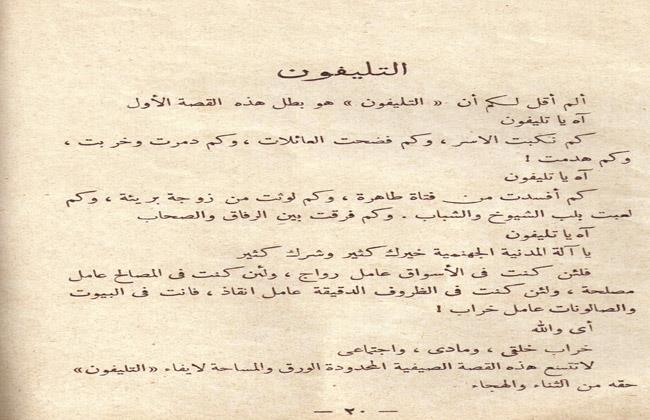 التليفون
ألم أقل لكم أن « التليفون » هو بطل هذه القصة الأول
آه يا تليفون
كم نكبت الاسر ، وكم فضحت العائلات ، وكم دمرت وخربت ،
وكم هدمت !
آه يا تليفون
كم أفسدت من فتاة طاهرة ، وكم لوثت من زوجة بريئة ، وكم
لعبت بلب الشيوخ والشباب . وكم فرقت بين الرفاق والصحاب
آه يا تليفون
يا آلة المدنية الجهنمية خيرك كثير وشرك كثير
فلئن كنت فى الأسواق عامل رواج ، ولئن كنت فى المصالح عامل
مصلحة ، ولئن كنت فى الظروف الدقيقة عامل انقاذ ، فانت فى البيوت
والصالونات عامل خراب !
أى والله
خراب خلقى ، ومادى ، واجتماعى
لاتتسع هذه القصة الصيفية المحدودة الورق والمساحة لايفاء «التليفون»
حقه من الثناء والهجاء
— ٢٠ —